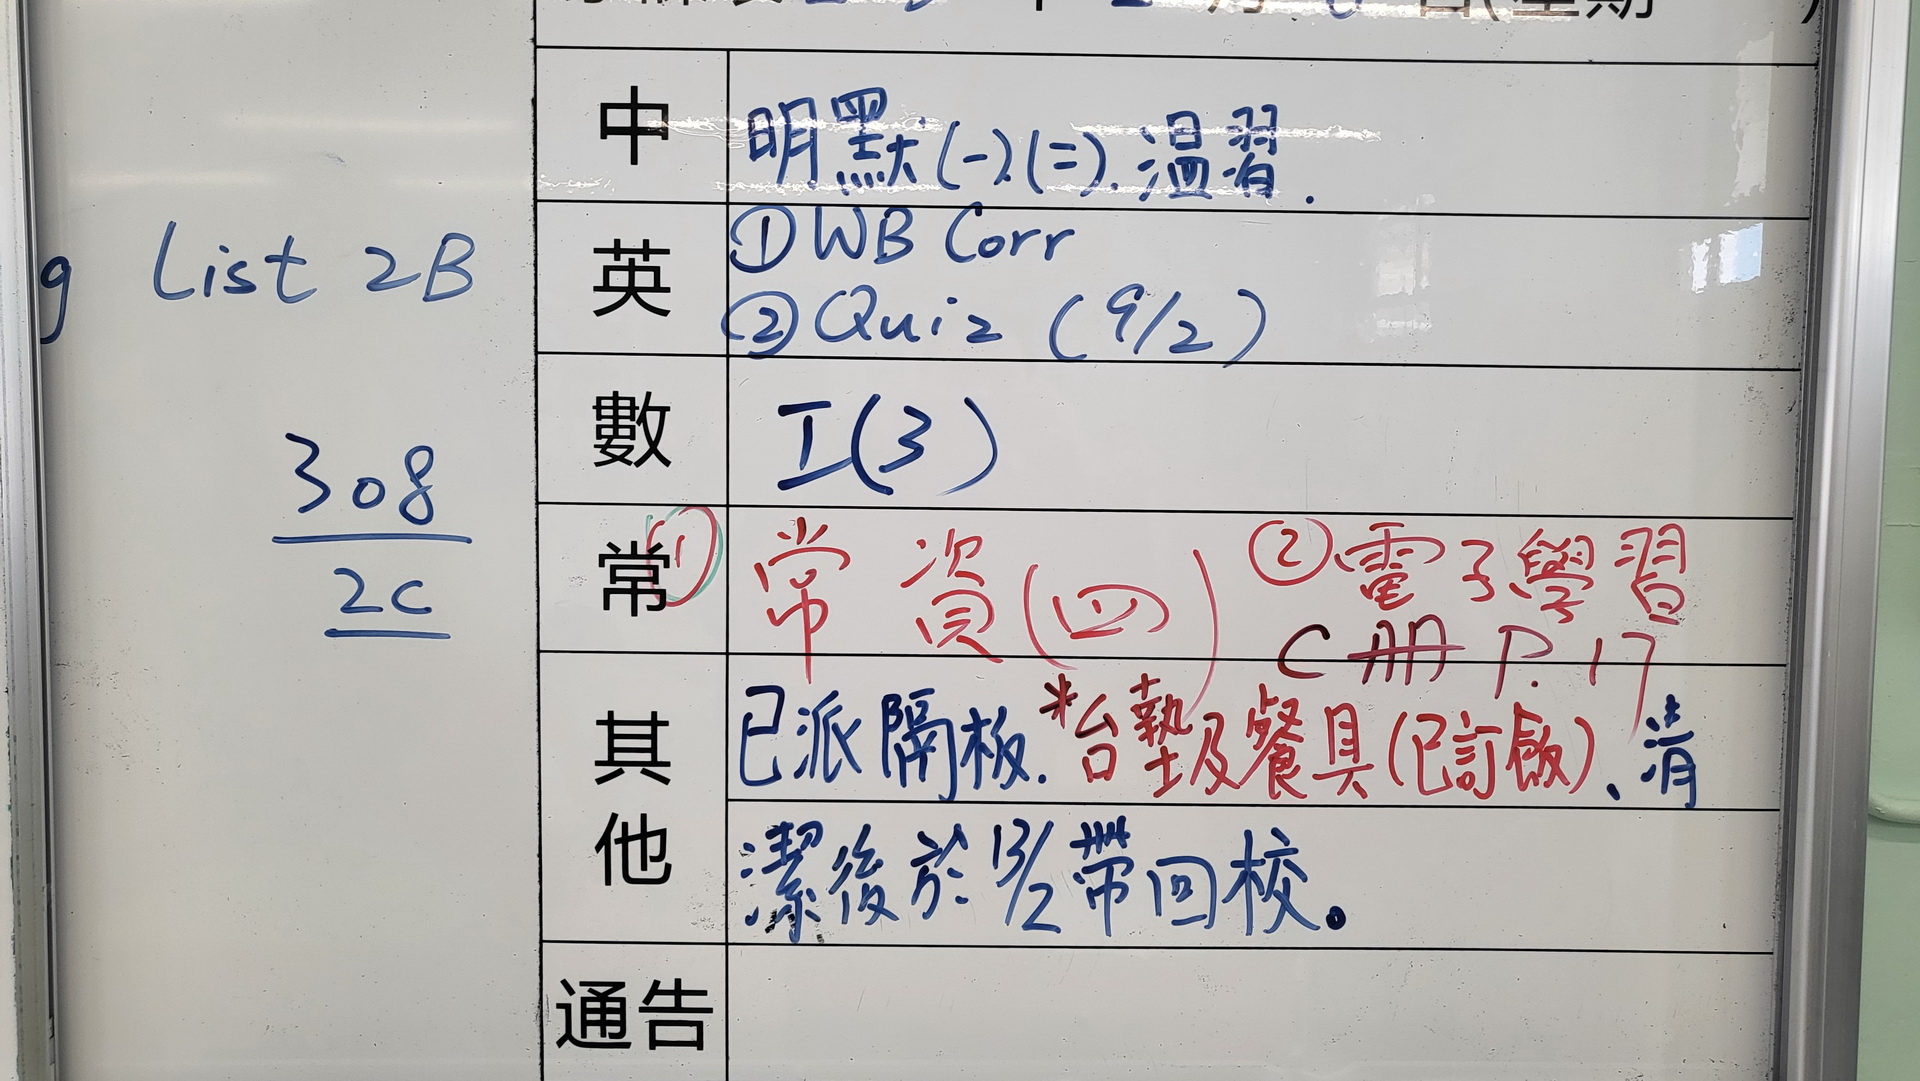 月 日(星期 )
中 明默(一).(二).溫習.
g List 2B
英 ①WB Corr
②Quiz (9/2)
308
2C
數 工(3)
常 ① 常資(四) ②電子學習
C冊 P.17
其他 已派隔板.*台墊及餐具(已訂飯)、清
潔後於13/2帶回校。
通告